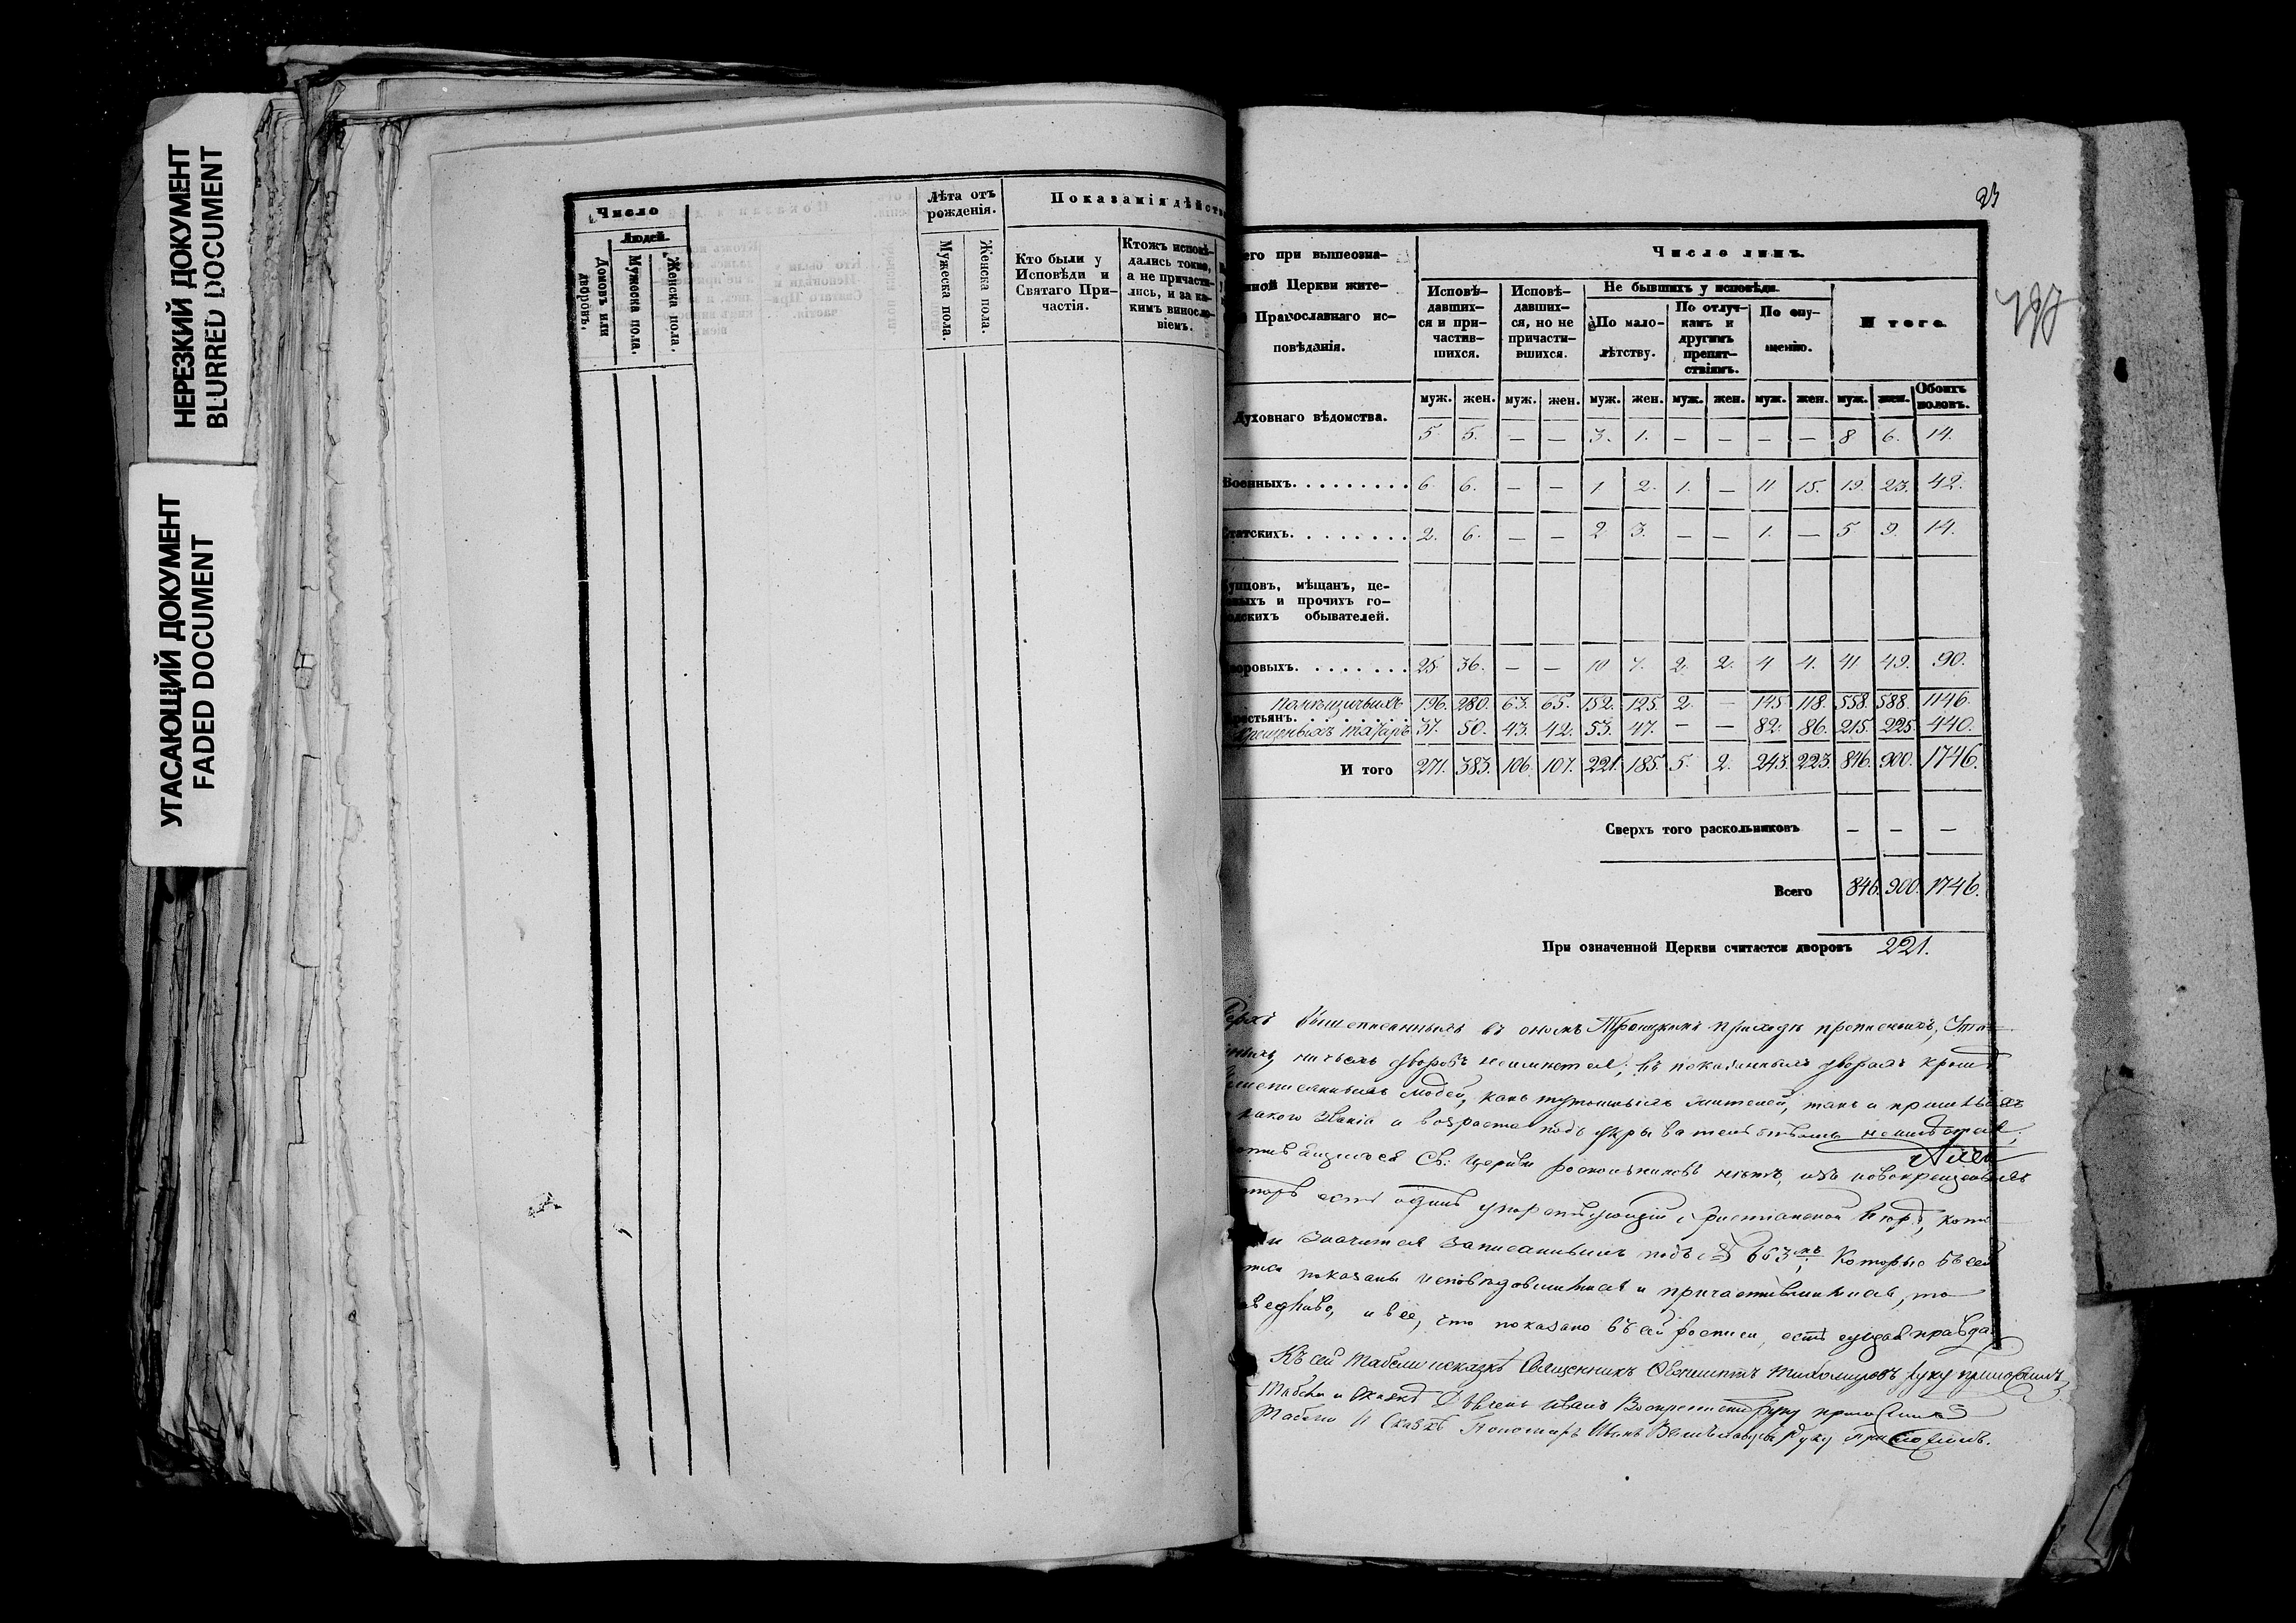 НЕРЕЗКИЙ ДОКУМЕНТ
BLURRED DOCUMENT
УГАСАЮЩИЙ ДОКУМЕНТ
FADED DOCUMENT
Число
Людей.
Домовъ или дворовъ.
Мужеска пола.
Женска пола.
Лѣта отъ
рожденія.
Мужеска пола.
Женска пола.
Показанія дѣйств
Кто были у
Исповѣди и
Святаго При-
частія.
Ктожъ исповѣ-
дались токмо,
а не причасти-
лись, и за ка-
кимъ винословіемъ.
23
его при вышеозна-
нной Церкви жите-
Православнаго ис-
повѣданія.
Число лицъ.
Исповѣ-
давших-
ся и при-
частив-
шихся.
Исповѣ-
давших-
ся, но не
причасти-
вшихся.
Не бывшихъ у исповѣди
По мало-
лѣтству.
По отлуч-
камъ и
другимъ
препят-
ствіямъ.
По опу-
щенію.
И того
муж. жен. муж. жен. муж. жен. муж. жен. муж. жен. муж. жен. Обоихъ половъ.
Духовнаго вѣдомства. 5. 5. — — 3. 1. — — — — 8 6. 14.
Военныхъ. 6. 6. — — 1 2. 1. — 11 15. 19. 23. 42.
Статскихъ. 2. 6. — — 2 3. — — 1. — 5 9. 14.
Купцовъ, мѣщанъ, це-
ховыхъ и прочихъ го-
родскихъ обывателей.
Дворовыхъ. 25. 36. — — 10 7. 2. 2. 4 4. 41. 49. 90.
помѣщичьихъ 196. 280. 63. 65. 152. 125. 2. — 145 118. 558. 588. 1146.
Крестьянъ.
крещеныхъ татаръ 37. 50. 43. 42. 53. 47. — — 82. 86. 215. 225. 440.
И того 271. 383. 106. 107. 221. 185. 5. 2. 243. 223. 846. 900. 1746.
Сверхъ того раскольниковъ — — —
Всего 846. 900. 1746.
При означенной Церкви считается дворовъ 221.
вышеписанныхъ въ ономъ Троицкомъ приходѣ
дворовъ неимѣется; въ показанныхъ дворахъ кромѣ
людей, какъ тутошныхъ жителей, такъ и пришлыхъ
какого званія и возраста подъ укрывательствомъ неимѣется;
Св: Церкви раскольниковъ нѣтъ, изъ новокрещеныхъ
есть одинъ
значится записаннымъ подъ № 663мъ, Которые въ сей
показаны исповѣдовшимися и причастившимися, то
и все, что показано въ сей росписи, есть сущая правда.
Къ сей табели и сказкѣ Священникъ Тихомировъ руку приложилъ
Табели и Сказкѣ Иванъ Воскресенскій руку приложилъ
Табели и Сказкѣ Пономарь Иванъ руку приложилъ.